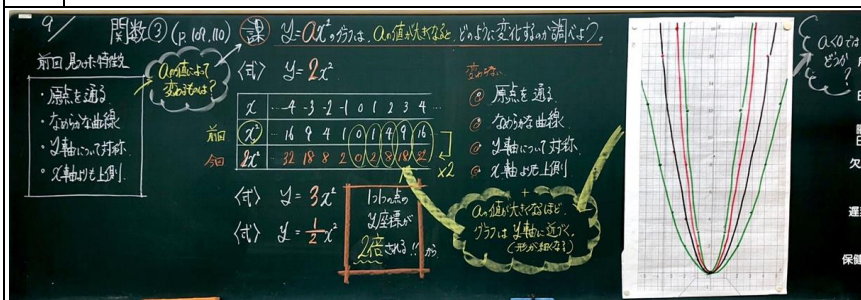 9/
関数③(p.109,110)
課 y=ax²のグラフは、aの値が大きくなると、どのように変化するのか調べよう。
前回見つけた特徴
・原点を通る
・なめらかな曲線
・y軸について対称
・x軸よりも上側
aの値によって
変わるものは?
〈式〉 y=2x²
x … -4 -3 -2 -1 0 1 2 3 4 …
前回 x² 16 9 4 1 0 1 4 9 16
今回 2x² 32 18 8 2 0 2 8 18 32
×2
〈式〉 y=3x²
〈式〉 y=1/2x²
1つ1つの点の
y座標が
2倍される!!から
◎ 原点を通る
◎ なめらかな曲線
◎ y軸について対称
◎ x軸よりも上側
+
aの値が大きくなるほど、
グラフはy軸に近づく。
(形が細くなる)
a<0では
どうか?
保健